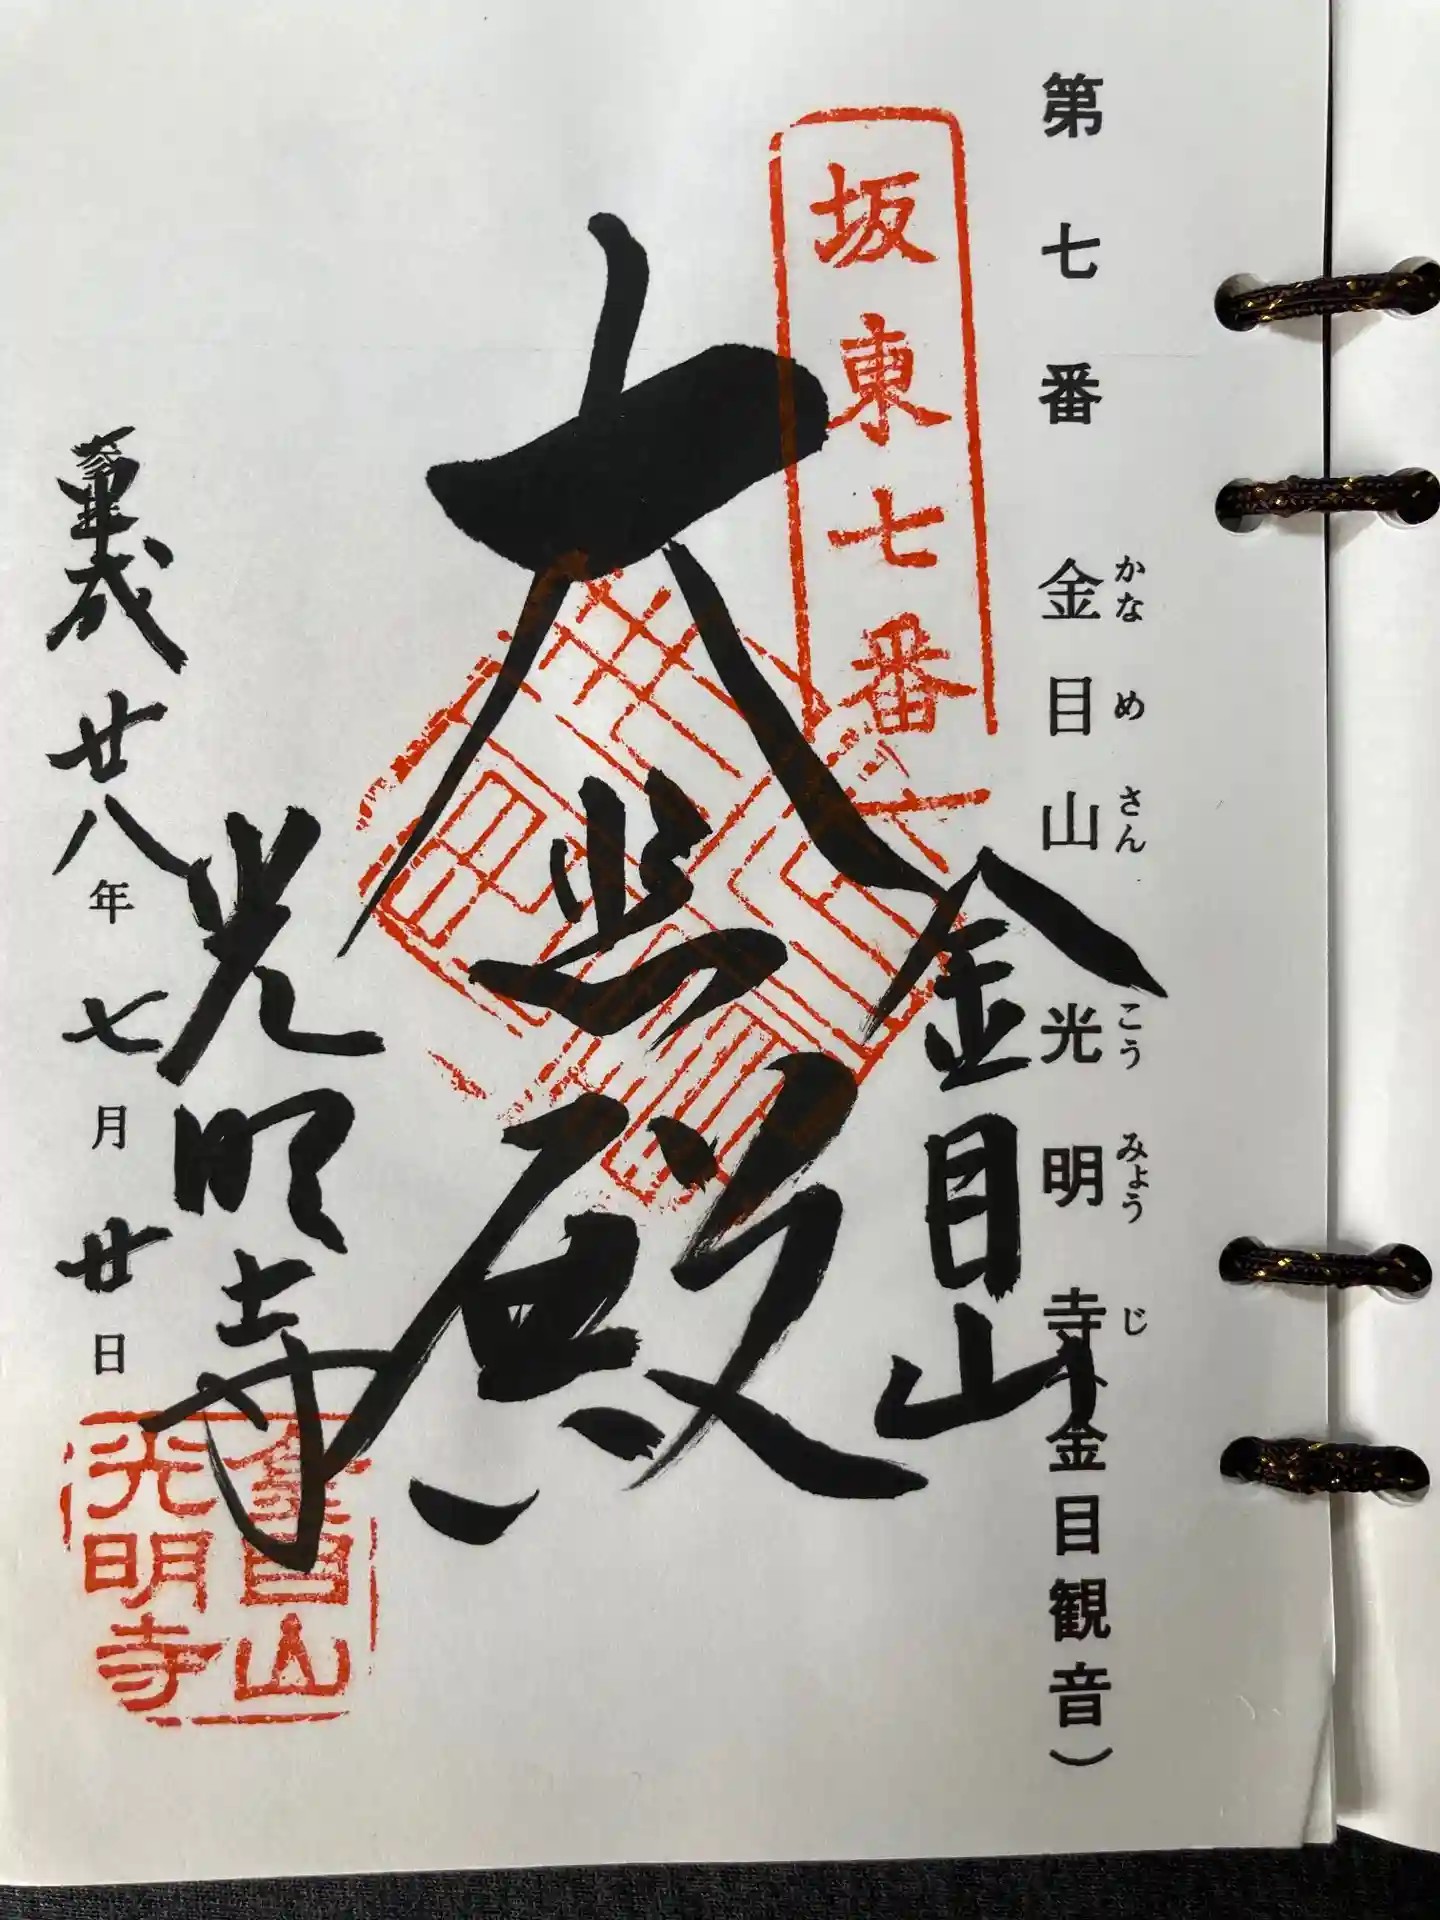 第七番 金目山 光明寺（金目観音）
かなめさん こうみょうじ
坂東七番
金目山
大悲殿
光明寺
奉拝
平成廿八年七月廿日
金目山
光明寺